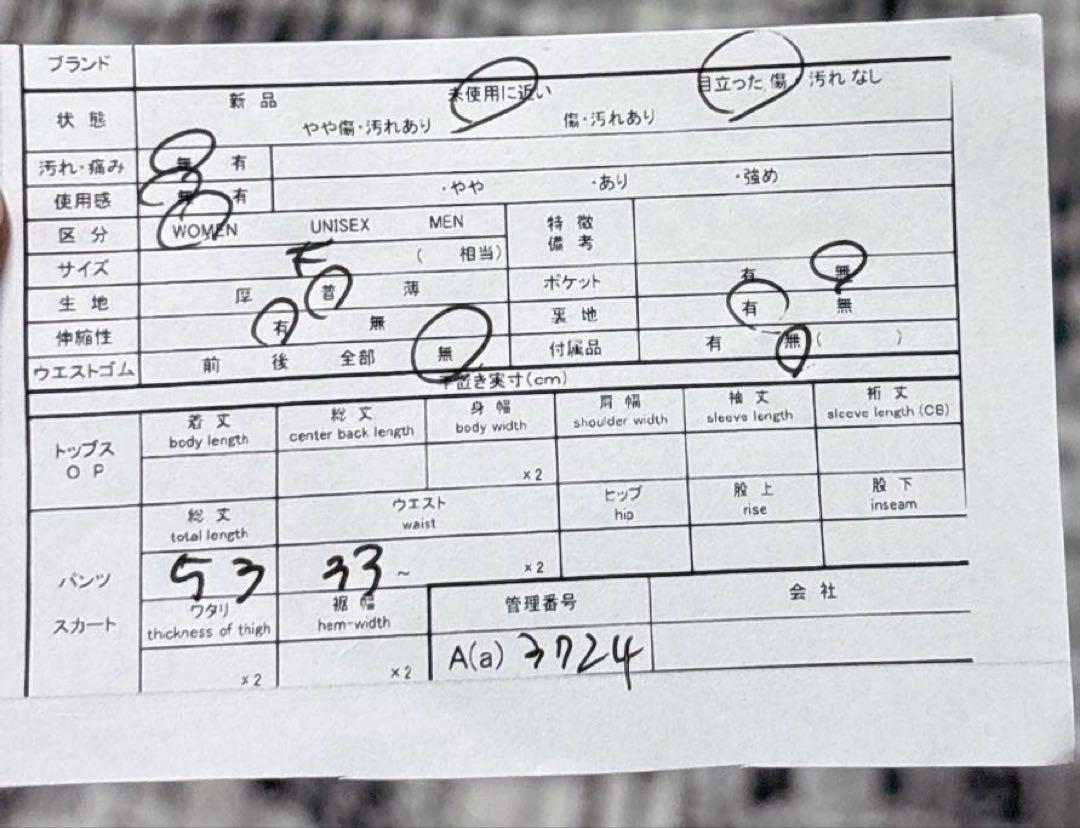 ブランド
状態 新品 未使用に近い 目立った傷、汚れなし
やや傷・汚れあり 傷・汚れあり
汚れ・痛み 無 有
使用感 無 有 ・やや ・あり ・強め
区分 WOMEN UNISEX MEN 特徴備考
サイズ F ( 相当)
生地 厚 普 薄 ポケット 有 無
伸縮性 有 無 裏地 有 無
ウエストゴム 前 後 全部 無 付属品 有 無 ( )
平置き実寸(cm)
トップス OP 着丈 総丈 身幅 肩幅 袖丈 裄丈
body length center back length body width shoulder width sleeve length sleeve length (CB)
×2
パンツ スカート 総丈 ウエスト ヒップ 股上 股下
total length waist hip rise inseam
53 33 ~ ×2
ワタリ 裾幅 管理番号 会社
thickness of thigh hem-width
×2 ×2 A(a) 3724